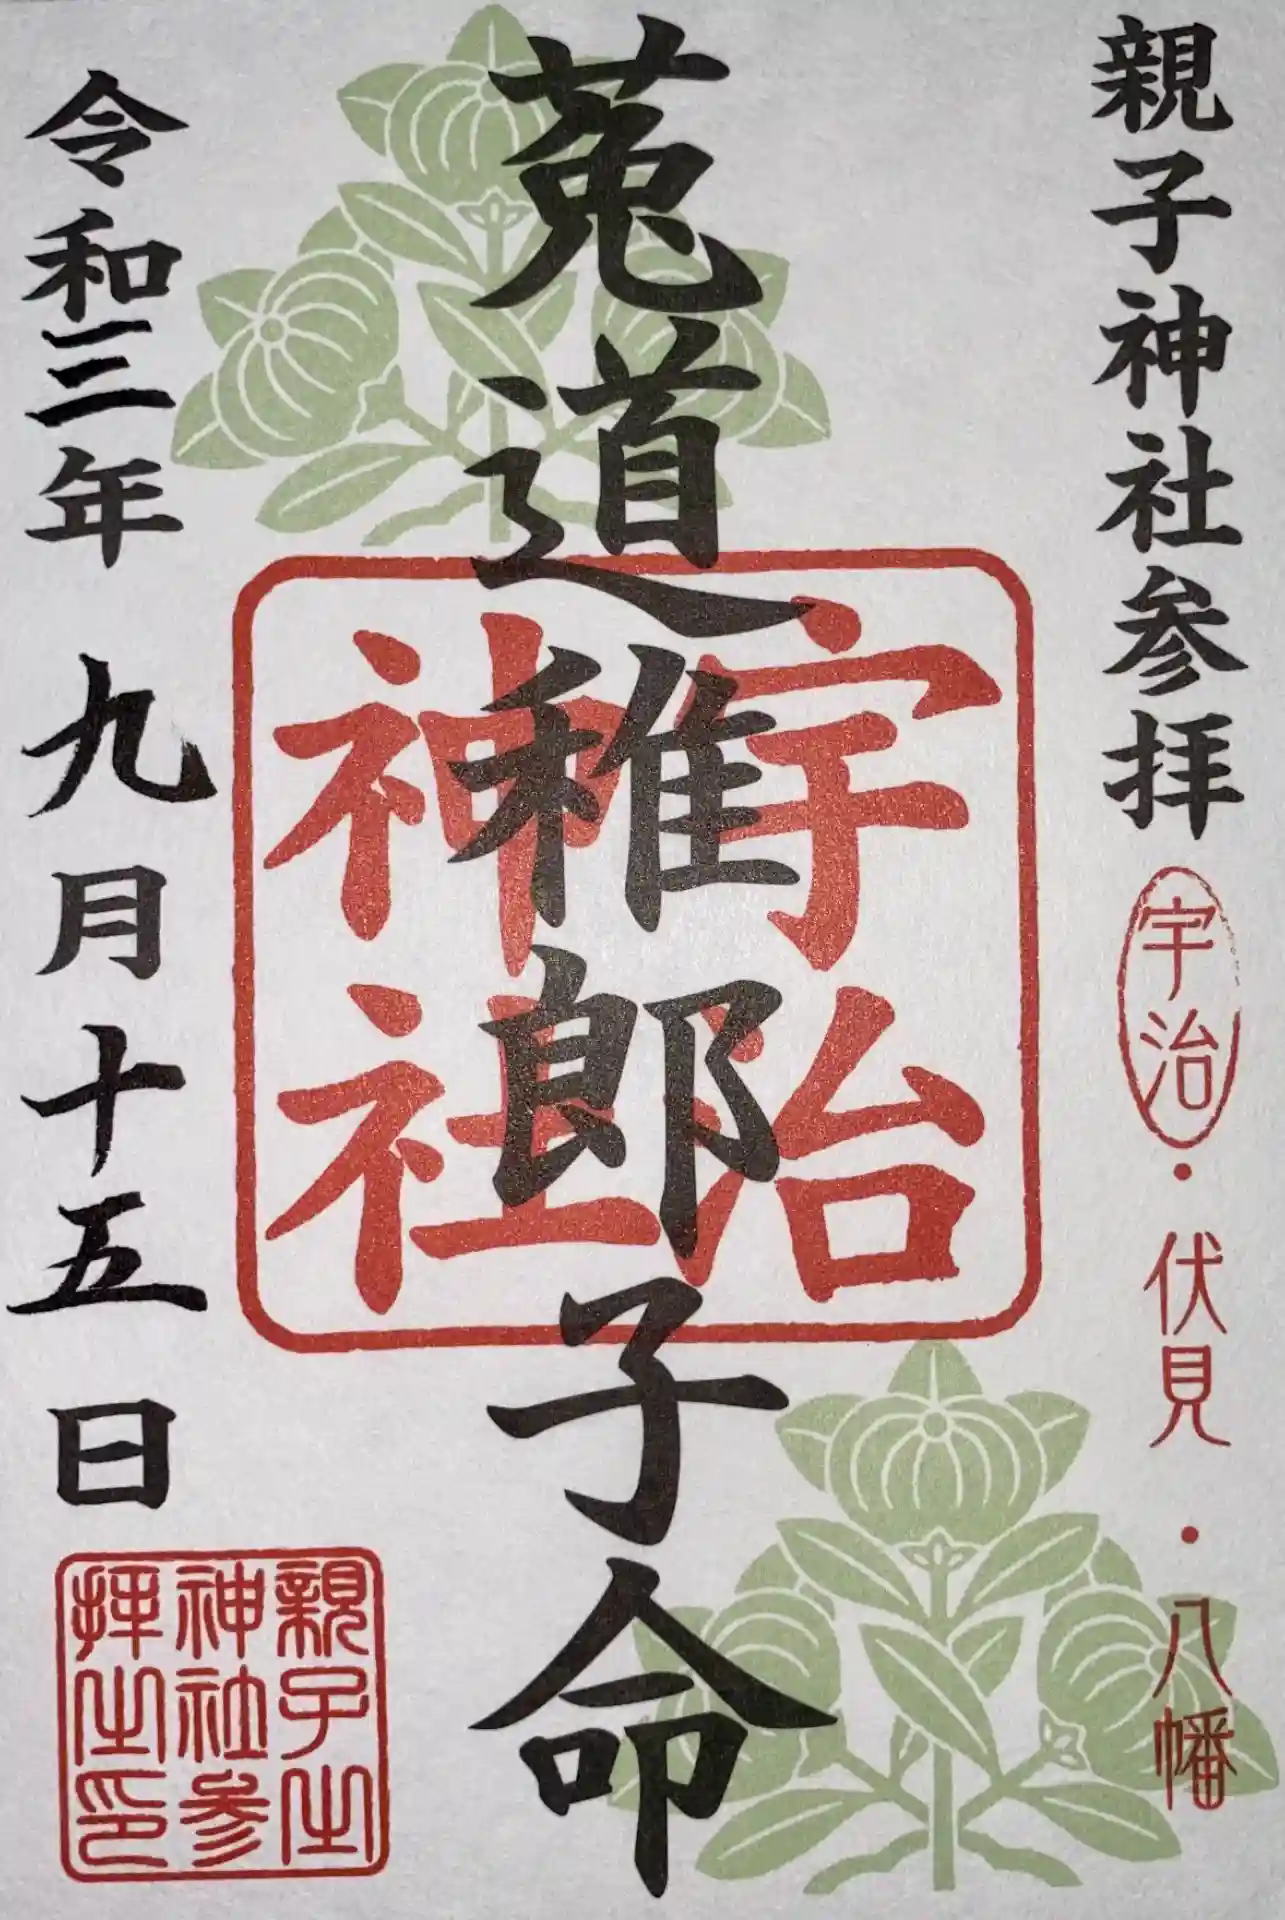 親子神社参拝
宇治・伏見・八幡
菟道稚郎子命
宇治
神社
令和三年九月十五日
親子之
神社参
拝之印